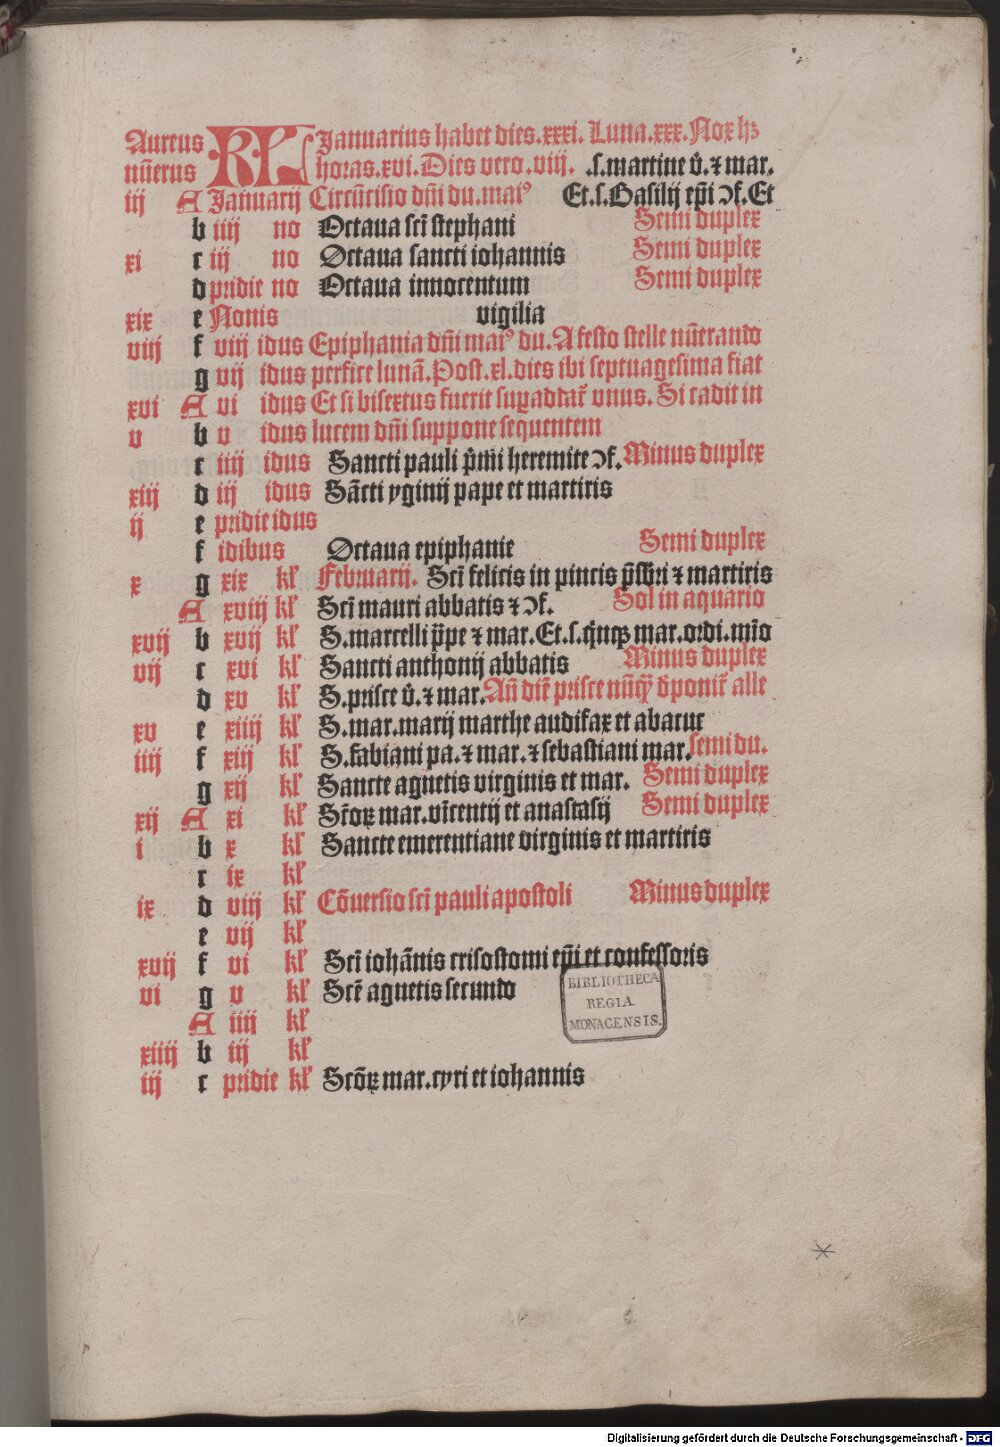 Aureus KL Januarius habet dies .xxxi. Luna .xxx. Nox hꝫ
nūerus horas .xvi. Dies vero .viij. .s. martine v̄. ⁊ mar.
iij A Januarij Circūcisio dn̄i du. maiꝰ Et .s. Basilij ep̄i ↄf. Et
b iiij no Octaua scī stephani Semi duplex
xi c iij no Octaua sancti iohannis Semi duplex
d pridie no Octaua innocentum Semi duplex
xix e Nonis vigilia
viij f viij idus Epiphania dn̄i maiꝰ du. A festo stelle nūerando
g vij idus perfice lunā. Post .xl. dies ibi septuagesima fiat
xvi A vi idus Et si bisextus fuerit suꝑaddat᷑ vnus. Si cadit in
v b v idus lucem dn̄i suppone sequentem
c iiij idus Sancti pauli p̄mi heremite ↄf. Minus duplex
xiij d iij idus Sācti yginij pape et martiris
ij e pridie idus
f idibus Octaua epiphanie Semi duplex
x g xix kl̓ Februarij. Scī felicis in pincis p̄sbri ⁊ martiris
A xviij kl̓ Scī mauri abbatis ⁊ ↄf. Sol in aquario
xvij b xvij kl̓ S. marcelli p̄pe ⁊ mar. Et .s. q̄nqꝫ mar. ordi. mi̅o
vij c xvi kl̓ Sancti anthonij abbatis Minus duplex
d xv kl̓ S. prisce v̄. ⁊ mar. An̄ diē prisce nūq̄ꝫ d̄ponit᷑ alle
xv e xiiij kl̓ S. mar. marij marthe audifax et abacuc
iiij f xiij kl̓ S. fabiani pa. ⁊ mar. ⁊ sebastiani mar. semi du.
g xij kl̓ Sancte agnetis virginis et mar. Semi duplex
xij A xi kl̓ Sc̄oꝝ mar. vīcentij et anastasij Semi duplex
i b x kl̓ Sancte emerentiane virginis et martiris
c ix kl̓
ix d viij kl̓ Cōuersio scī pauli apostoli Minus duplex
e vij kl̓
xvij f vi kl̓ Scī iohānis crisostomi ep̄i et confessoris
vi g v kl̓ Sce̅ agnetis secundo
A iiij kl̓
xiiij b iij kl̓
iij c pridie kl̓ Scōꝝ mar. cyri et iohannis
BIBLIOTHECA
REGIA
MONACENSIS.
Digitalisierung gefördert durch die Deutsche Forschungsgemeinschaft - DFG